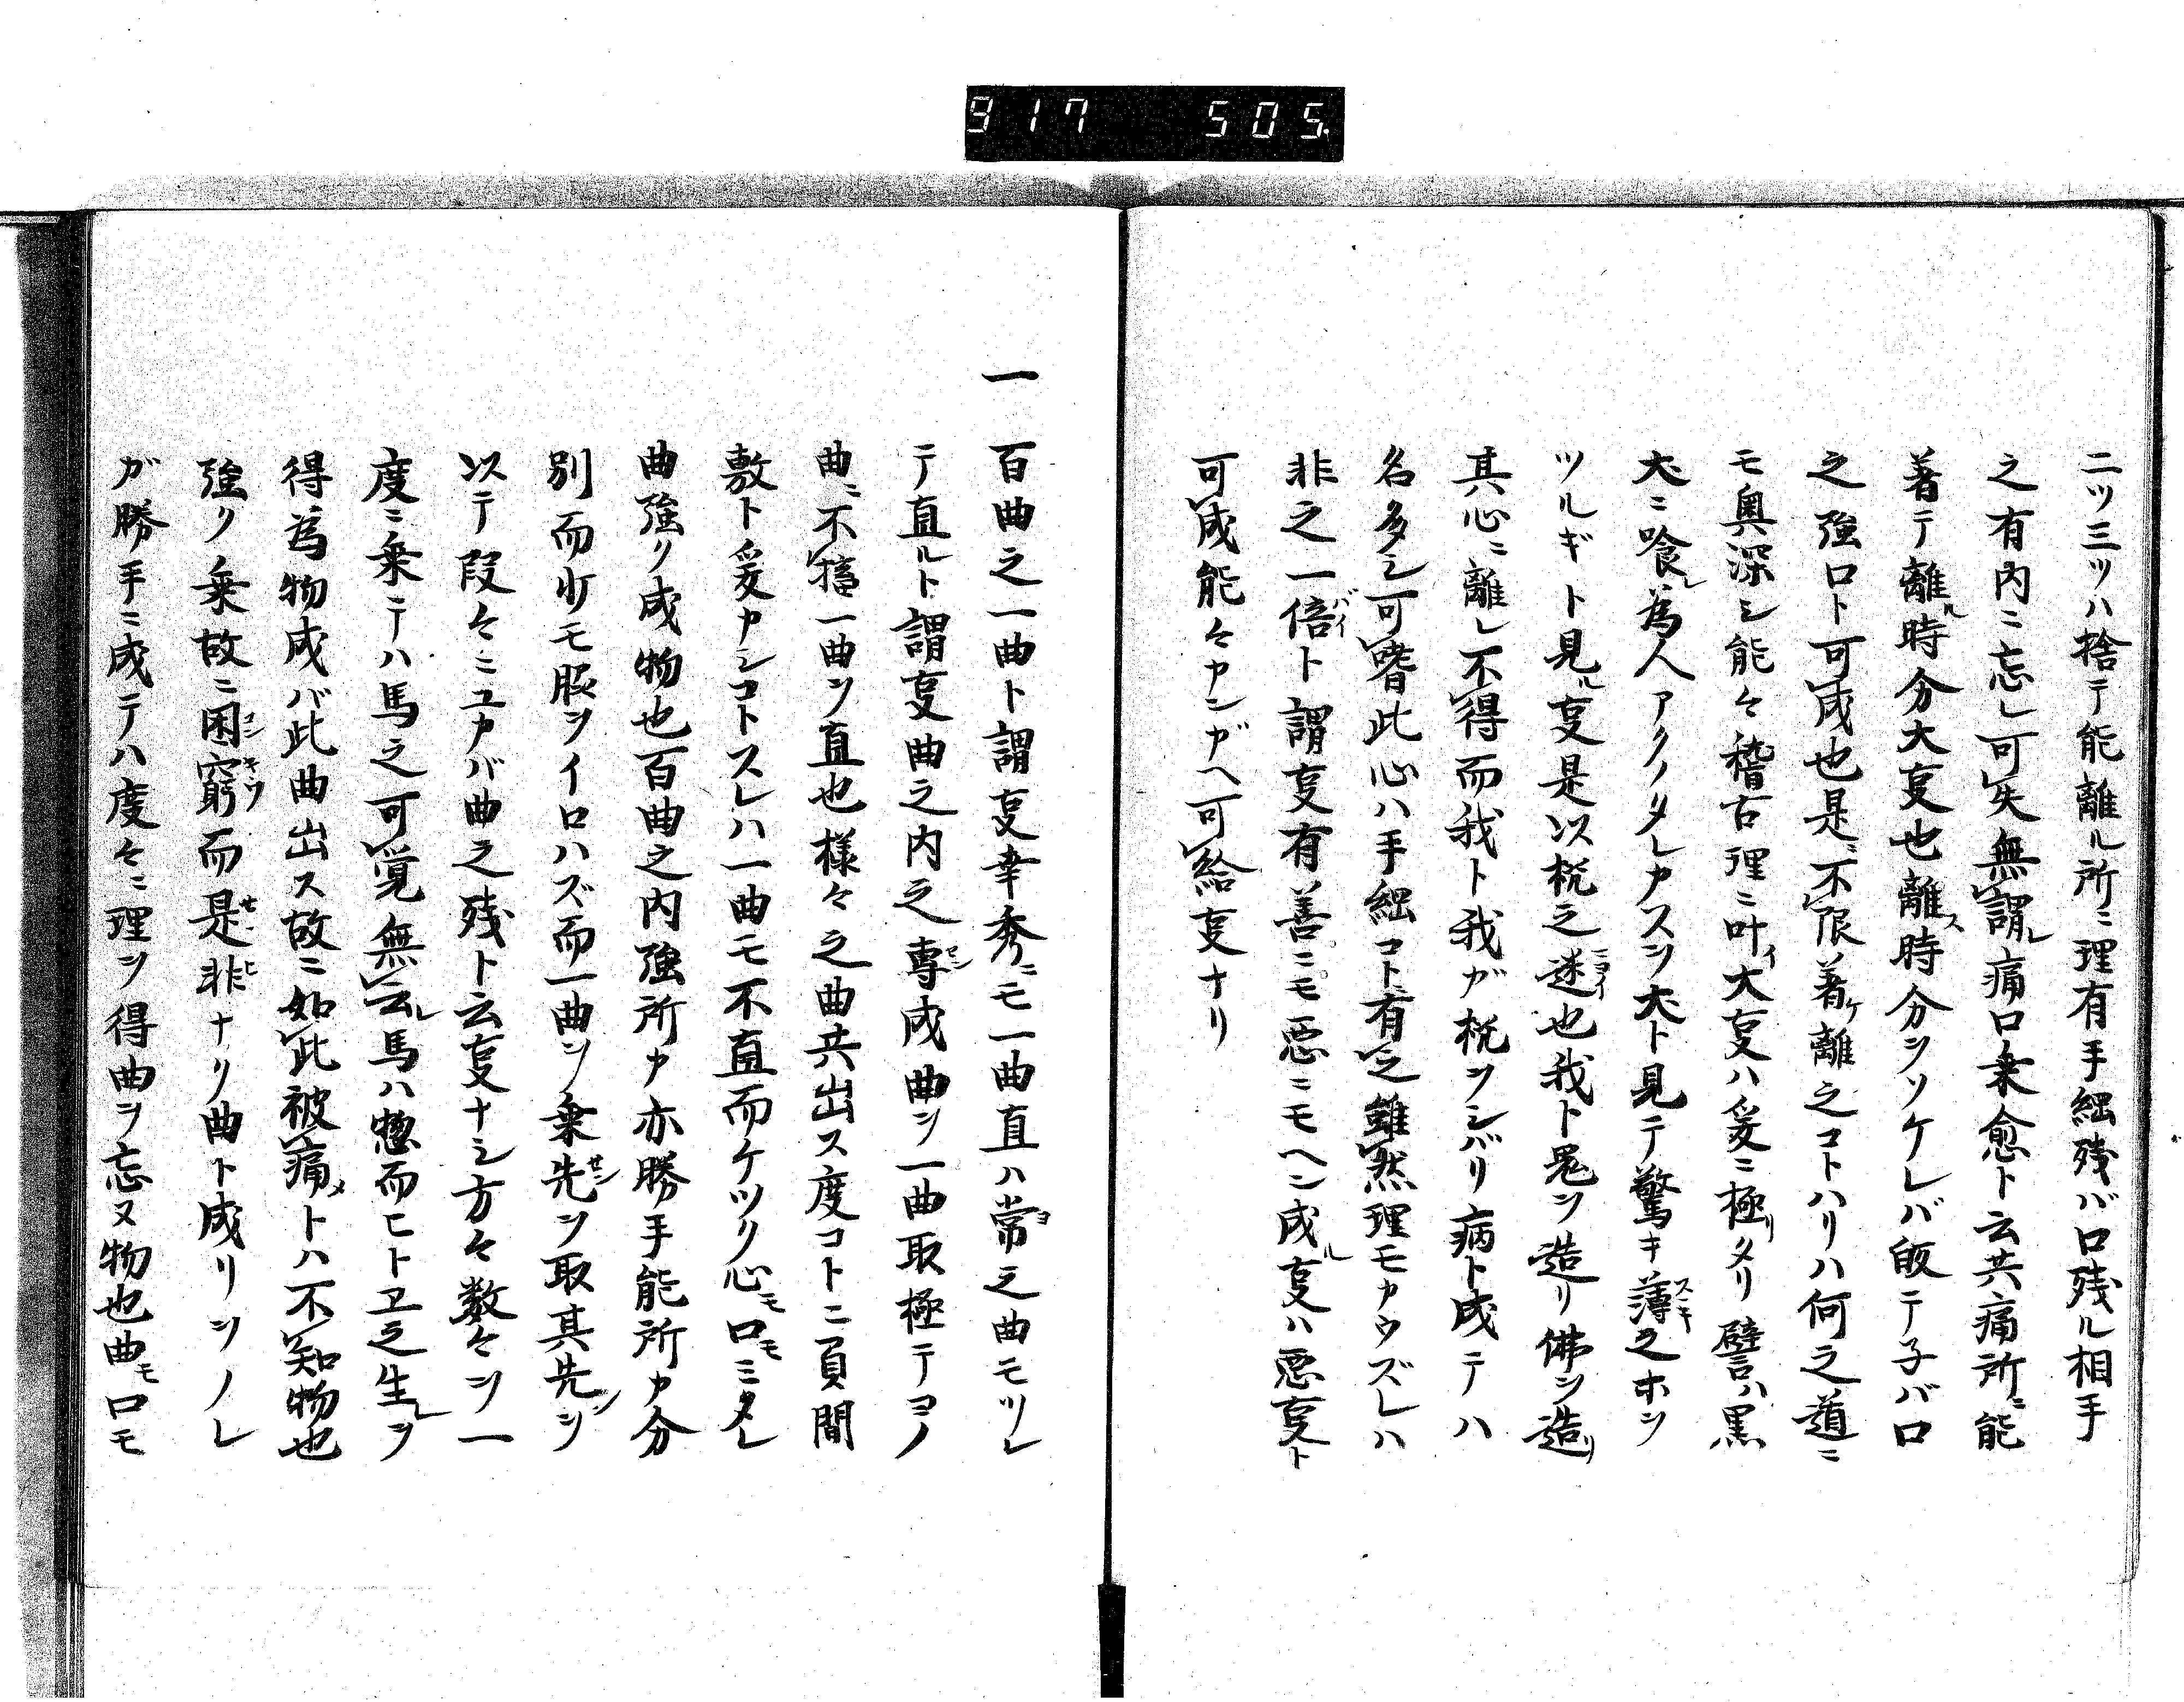 917 505
二ツ三ツハ捨テ能離ル所ニ理有手綱残バ口残ル相手
之有内ニ忘レ可失無謂レ痛口乗愈ト云共痛所ニ能
著テ離ル時分大叓也離ス時分ンソケレバ皈テ子バロ
之強口ト可成也是ニ不限著ケ離之コトハリハ何之道ニ
モ奥深シ能々稽古理ニ叶イ大叓ハ爰ニ極リタリ譬ハ黒
犬ニ喰レ為人アクノタレカスヲ犬ト見テ驚キ薄之ホヲ
ツルギト見ル叓是以杭之迷也我ト鬼ヲ造リ佛ヲ造リ
其心ニ離レ不得而我ト我ガ杭ヲシバリ病ト成テハ
名多シ可嗜此心ハ手綱コトニ有之雖然理モカウズレハ
非之一倍ト謂叓有善ニモ悪ニモヘン成ル叓ハ悪叓ト
可成能々カンガヘ可給叓ナリ
一 百曲之一曲ト謂叓幸秀ニモ一曲直ハ常之曲モツレ
テ直ルト謂叓曲之内之專成曲ヲ一曲取極テヨノ
曲ニ不搆一曲ヲ直也様々之曲共出ス度コトニ頁間
敷ト爰カシコトスレハ一曲モ不直而ケツリ心モ口モミタレ
曲強ク成物也百曲之内強所カ亦勝手能所カ分
別而少モ脇ヲイロハズ而一曲ヲノ乗先ヲ取其先ヲ
以テ段々ニユカバ曲之残ト云叓ナシ方々数々ヲ一
度ニ乗テハ馬之可覚無云レ馬ハ惣而ヒトヱ之生レヲ
得為物成バ此曲出ス故ニ如此被痛メトハ不知物也
強ク乗故ニ困窮而是非ナリ曲ト成リソノレ
ガ勝手ニ成テハ度々ニ理ヲ得曲ヲ忘ヌ物也曲モ口モ